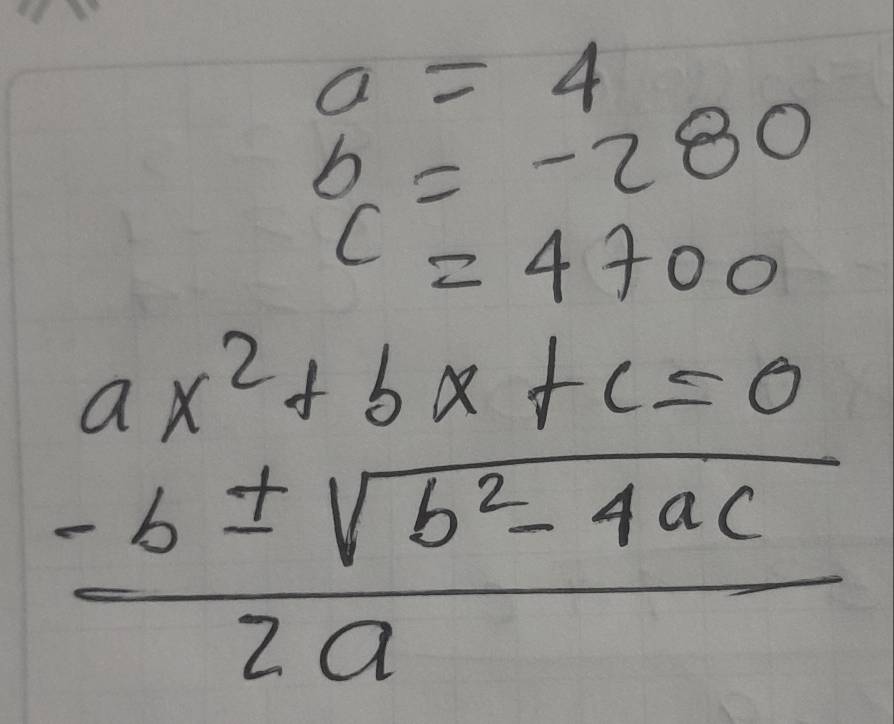 a = 4
b = -280
c = 4700
ax² + bx + c = 0
-b ± √b² - 4ac
2a